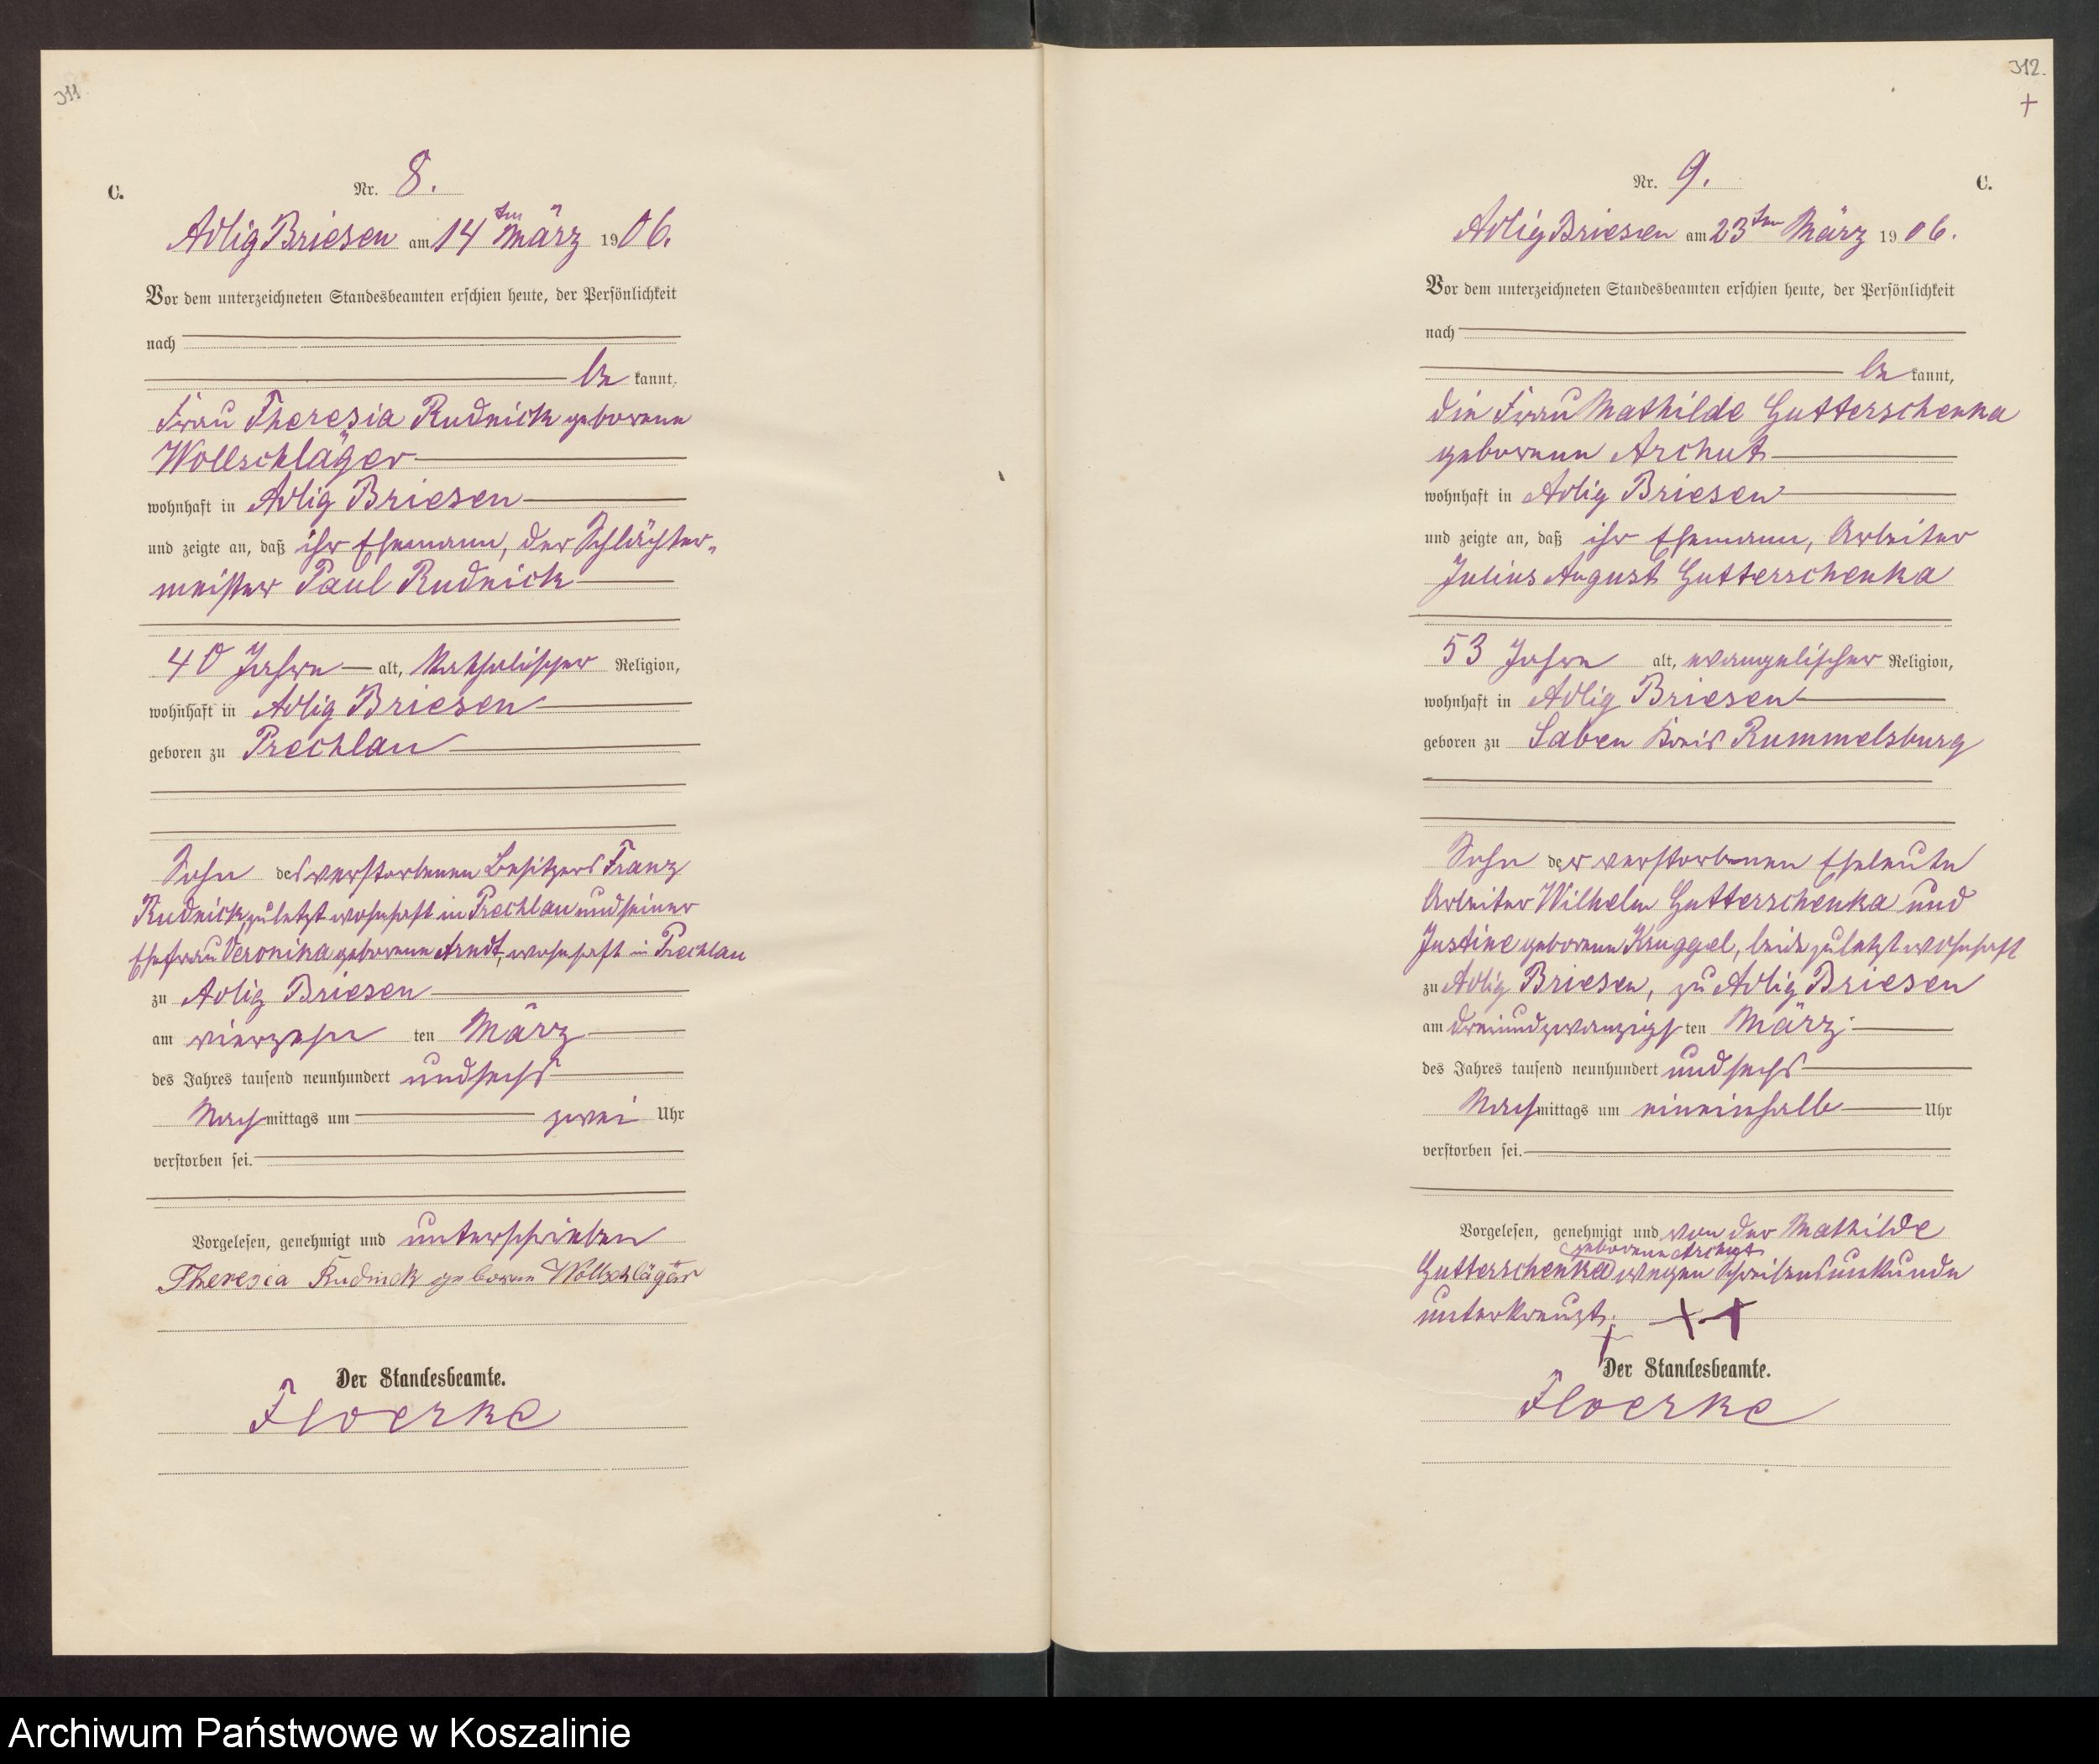 311.
C.
Nr. 8.
Adlig Briesen am 14ten März 1906.
Vor dem unterzeichneten Standesbeamten erschien heute, der Persönlichkeit
nach
be kannt,
Frau Theresia Rudnick geborene
Wollschläger
wohnhaft in Adlig Briesen
und zeigte an, daß ihr Ehemann, der Schlächter-
meister Paul Rudnick
40 Jahre alt, katholischer Religion,
wohnhaft in Adlig Briesen
geboren zu Prechlau
Sohn des verstorbenen Besitzers Franz
Rudnick zuletzt wohnhaft in Prechlau und seiner
Ehefrau Veronika geborene Arndt, wohnhaft in Prechlau
zu Adlig Briesen
am vierzehn ten März
des Jahres tausend neunhundert und sechs
Nachmittags um zwei Uhr
verstorben sei.
Vorgelesen, genehmigt und unterschrieben
Theresia Rudnick geborene Wollschläger
Der Standesbeamte.
Floerke
312.
+
Nr. 9.
C.
Adlig Briesen am 23ten März 1906.
Vor dem unterzeichneten Standesbeamten erschien heute, der Persönlichkeit
nach
be kannt,
die Frau Mathilde Gutterschenka
geborene Archut
wohnhaft in Adlig Briesen
und zeigte an, daß ihr Ehemann, Arbeiter
Julius August Gutterschenka
53 Jahre alt, evangelischer Religion,
wohnhaft in Adlig Briesen
geboren zu Saben Kreis Rummelsburg
Sohn der verstorbenen Eheleute
Arbeiter Wilhelm Gutterschenka und
Justine geborene Kruggel, beide zuletzt wohnhaft
zu Adlig Briesen, zu Adlig Briesen
am dreiundzwanzigs ten März
des Jahres tausend neunhundert und sechs
Nachmittags um eineinhalb Uhr
verstorben sei.
Vorgelesen, genehmigt und von der Mathilde
geborene Archut
Gutterschenka wegen Schreibensunkunde
unterkreuzt. + + +
Der Standesbeamte.
Floerke
Archiwum Państwowe w Koszalinie